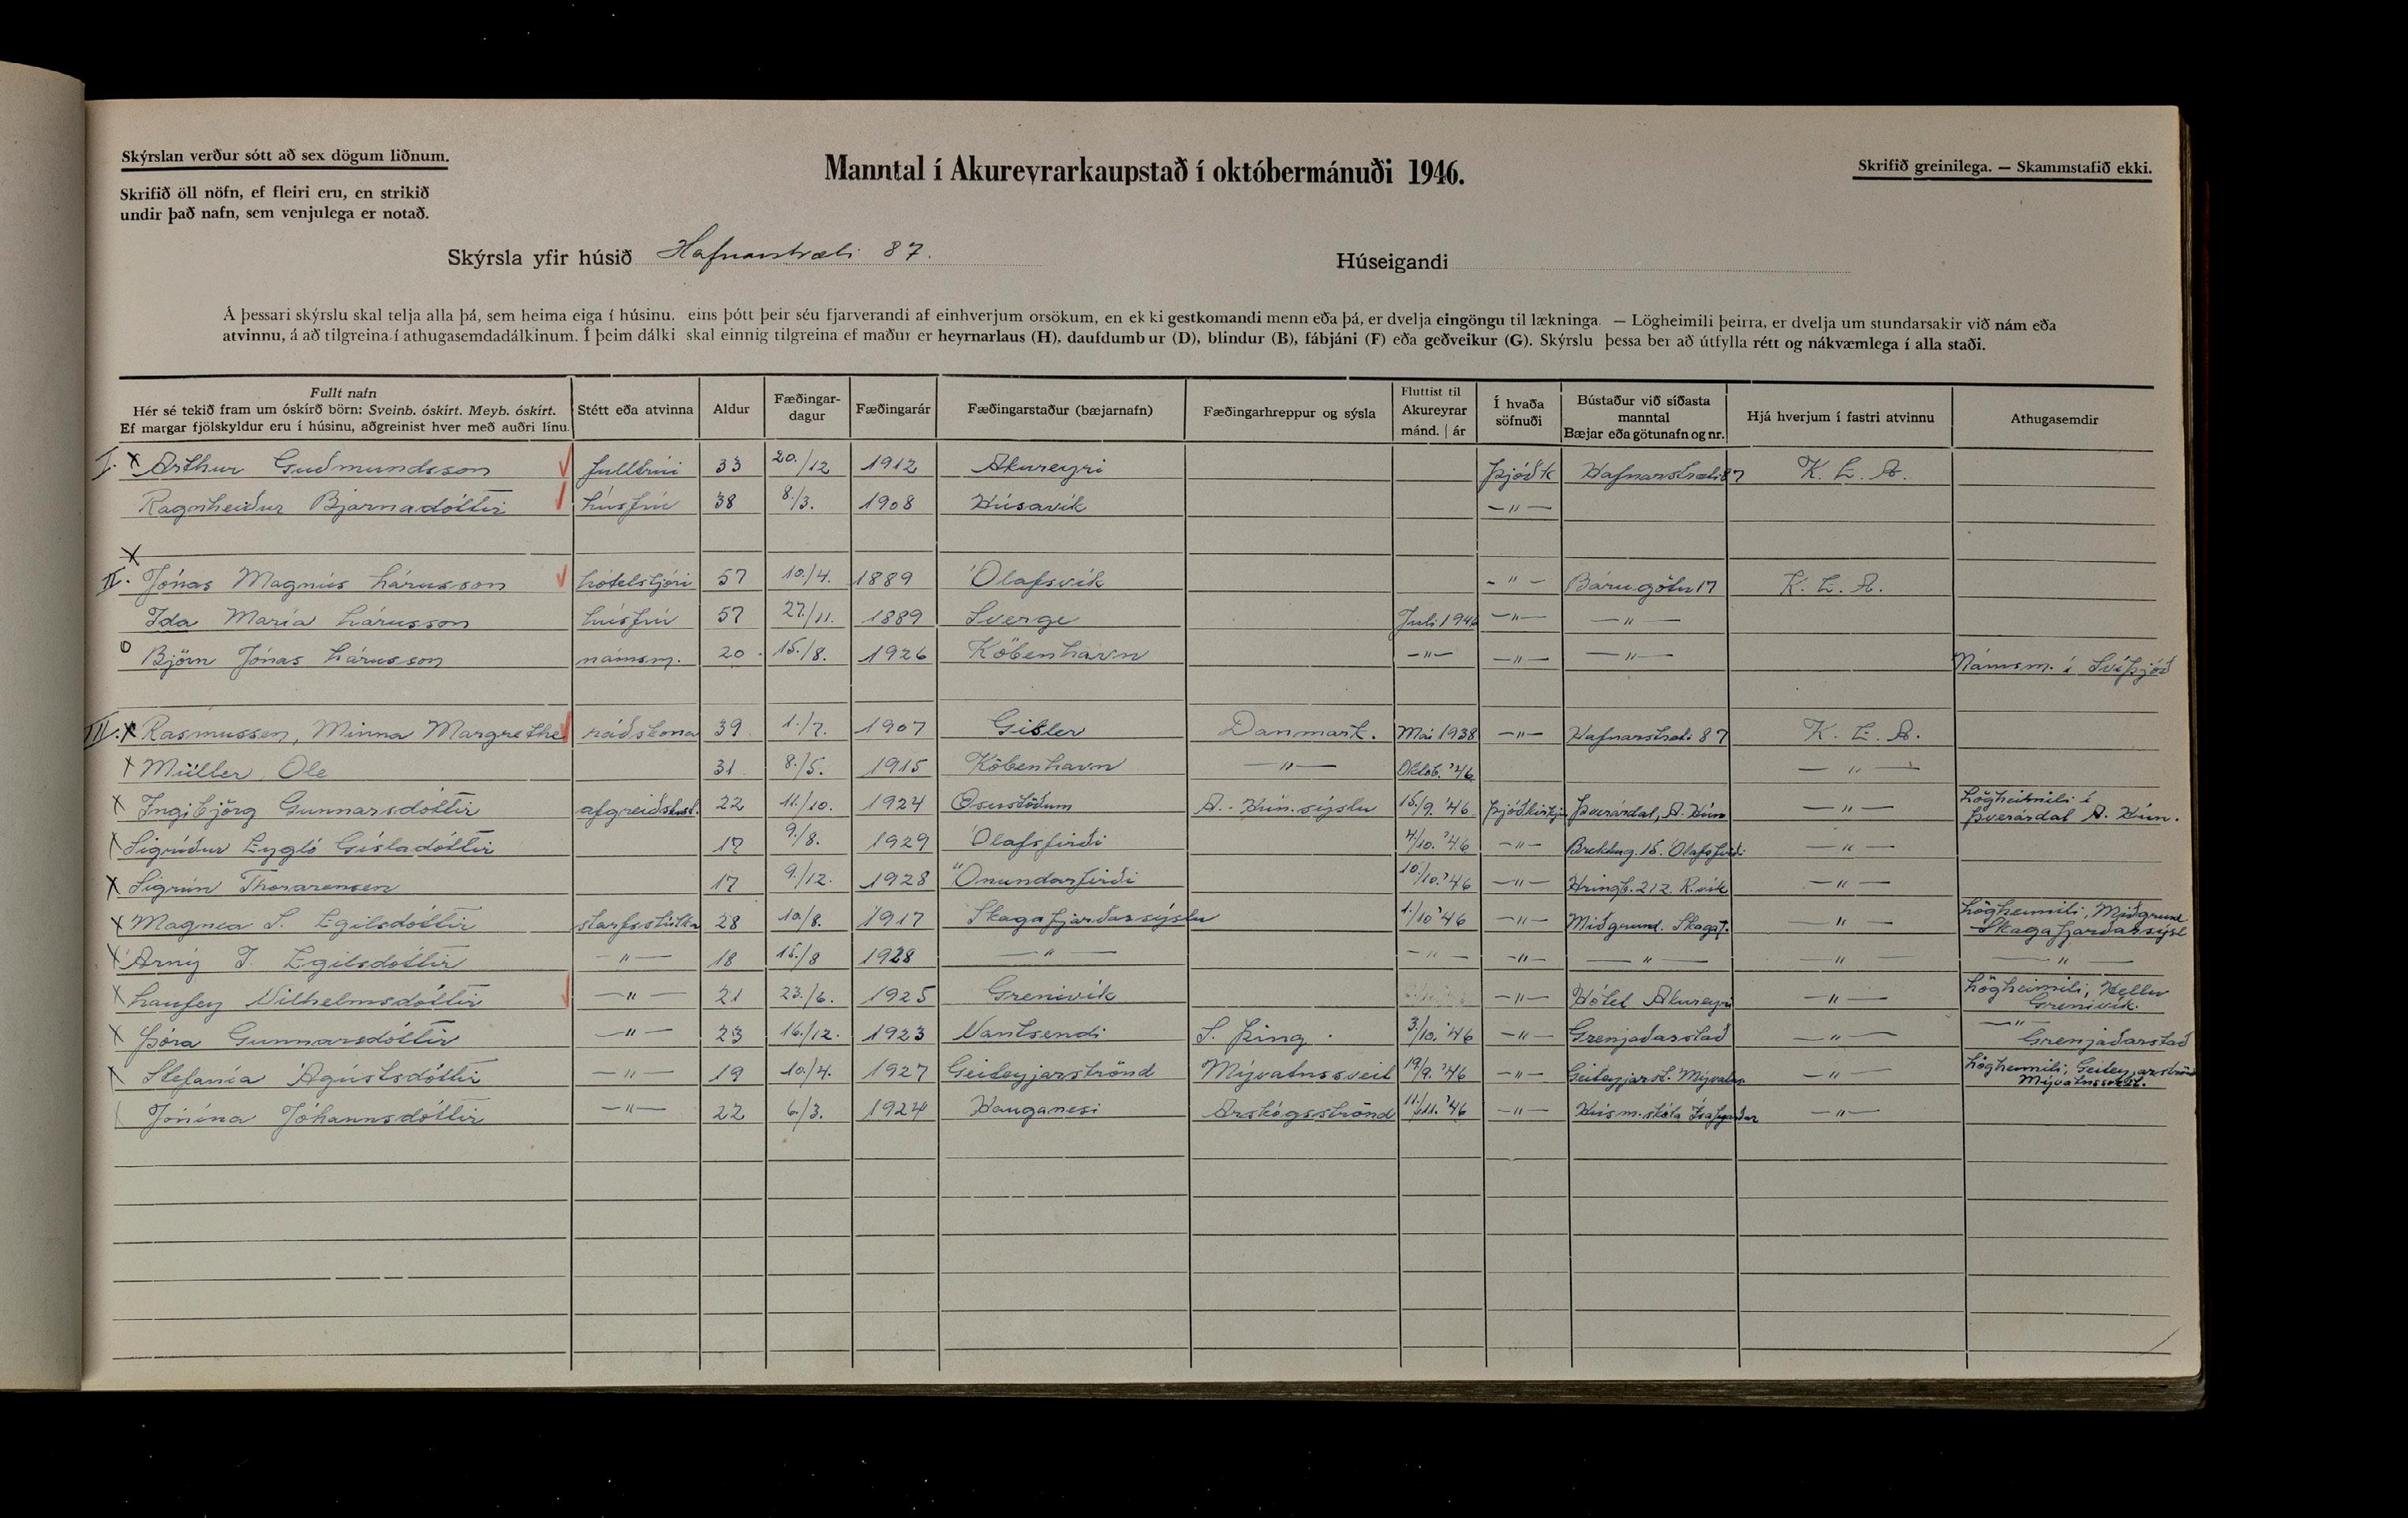 Skýrslan verður sótt að sex dögum liðnum.
Skrifið öll nöfn, ef fleiri eru, en strikið
undir það nafn, sem venjulega er notað.
Manntal í Akureyrarkaupstað í októbermánuði 1946.
Skrifið greinilega. — Skammstafið ekki.
Skýrsla yfir húsið Hafnarstræti 87.
Húseigandi
Á þessari skýrslu skal telja alla þá, sem heima eiga í húsinu, eins þótt þeir séu fjarverandi af einhverjum orsökum, en ekki gestkomandi menn eða þá, er dvelja eingöngu til lækninga. — Lögheimili þeirra, er dvelja um stundarsakir við nám eða
atvinnu, á að tilgreina í athugasemdadálkinum. Í þeim dálki skal einnig tilgreina ef maður er heyrnarlaus (H), daufdumbur (D), blindur (B), fábjáni (F) eða geðveikur (G). Skýrslu þessa ber að útfylla rétt og nákvæmlega í alla staði.
Fullt nafn
Hér sé tekið fram um óskírð börn: Sveinb. óskírt. Meyb. óskírt.
Ef margar fjölskyldur eru í húsinu, aðgreinist hver með auðri línu.
Stétt eða atvinna
Aldur
Fæðingar-
dagur
Fæðingarár
Fæðingarstaður (bæjarnafn)
Fæðingarhreppur og sýsla
Fluttist til
Akureyrar
mánd. | ár
Í hvaða
söfnuði
Bústaður við síðasta
manntal
Bæjar eða götunafn og nr.
Hjá hverjum í fastri atvinnu
Athugasemdir
I. x Arthur Guðmundsson fulltrúi 33 20./12 1912 Akureyri Þjóðk Hafnarstræti 87 K. E. A.
Ragnheiður Bjarnadóttir húsfrú 38 8./3. 1908 Húsavík —"—
x
II. Jónas Magnús Lárusson hótelstjóri 57 10./4. 1889 Ólafsvík —"— Bárugötu 17 K. E. A.
Ida María Lárusson húsfrú 57 27./11. 1889 Sverge Juli 1946 —"— —"—
o Björn Jónas Lárusson námsm. 20 15./8. 1926 Köbenhavn —"— —"— —"— Námsm. í Svíþjóð
III. x Rasmussen, Minna Margrethe ráðskona 39 1./7. 1907 Danmark. Maí 1938 —"— Hafnarstræti 87 K. E. A.
x Müller, Ole 31 8./5. 1915 Köbenhavn —"— Októb. '46 —"—
x Ingibjörg Gunnarsdóttir afgreiðslust. 22 11./10. 1924 Æsustöðum A.-Hún.sýslu 15./9. '46 Þjóðkirkju Þverárdal, A. Hún —"— Lögheimili í
Þverárdal A. Hún.
x Sigríður Eygló Gísladóttir 17 9./8. 1929 Ólafsfirði 4./10. '46 —"— Brekkug. 15. Ólafsfirði —"—
x Sigrún Thorarensen 17 9./12. 1928 Önundarfirði 10./10. '46 —"— Hringb. 212. R.vík —"—
x Magnea S. Egilsdóttir starfsstúlka 28 10./8. 1917 Skagafjarðarsýslu 1./10 '46 —"— Miðgrund. Skagaf. —"— Lögheimili, Miðgrund
Skagafjarðarsýsl
x Árný J. Egilsdóttir —"— 18 15./8 1928 —"— —"— —"— —"— —"— —"—
x Laufey Vilhelmsdóttir —"— 21 23./6. 1925 Grenivík —"— Hótel Akureyri —"— Lögheimili, Hellu
Grenivík.
x Þóra Gunnarsdóttir —"— 23 16./12. 1923 Vantsendi S. Þing. 3./10. '46 —"— Grenjaðarstað —"— —"—
Grenjaðarstað
x Stefanía Ágústsdóttir —"— 19 10./4. 1927 Geiteyjarströnd Mývatnssveit 19./9. '46 —"— Geiteyjarst. Mývatns. —"— Lögheimili; Geiteyjarströnd
Mývatnssveit.
Jónína Jóhannsdóttir —"— 22 6./3. 1924 Hauganesi Árskógsströnd 11./11. '46 —"— Húsm.skóla Ísafjarðar —"—